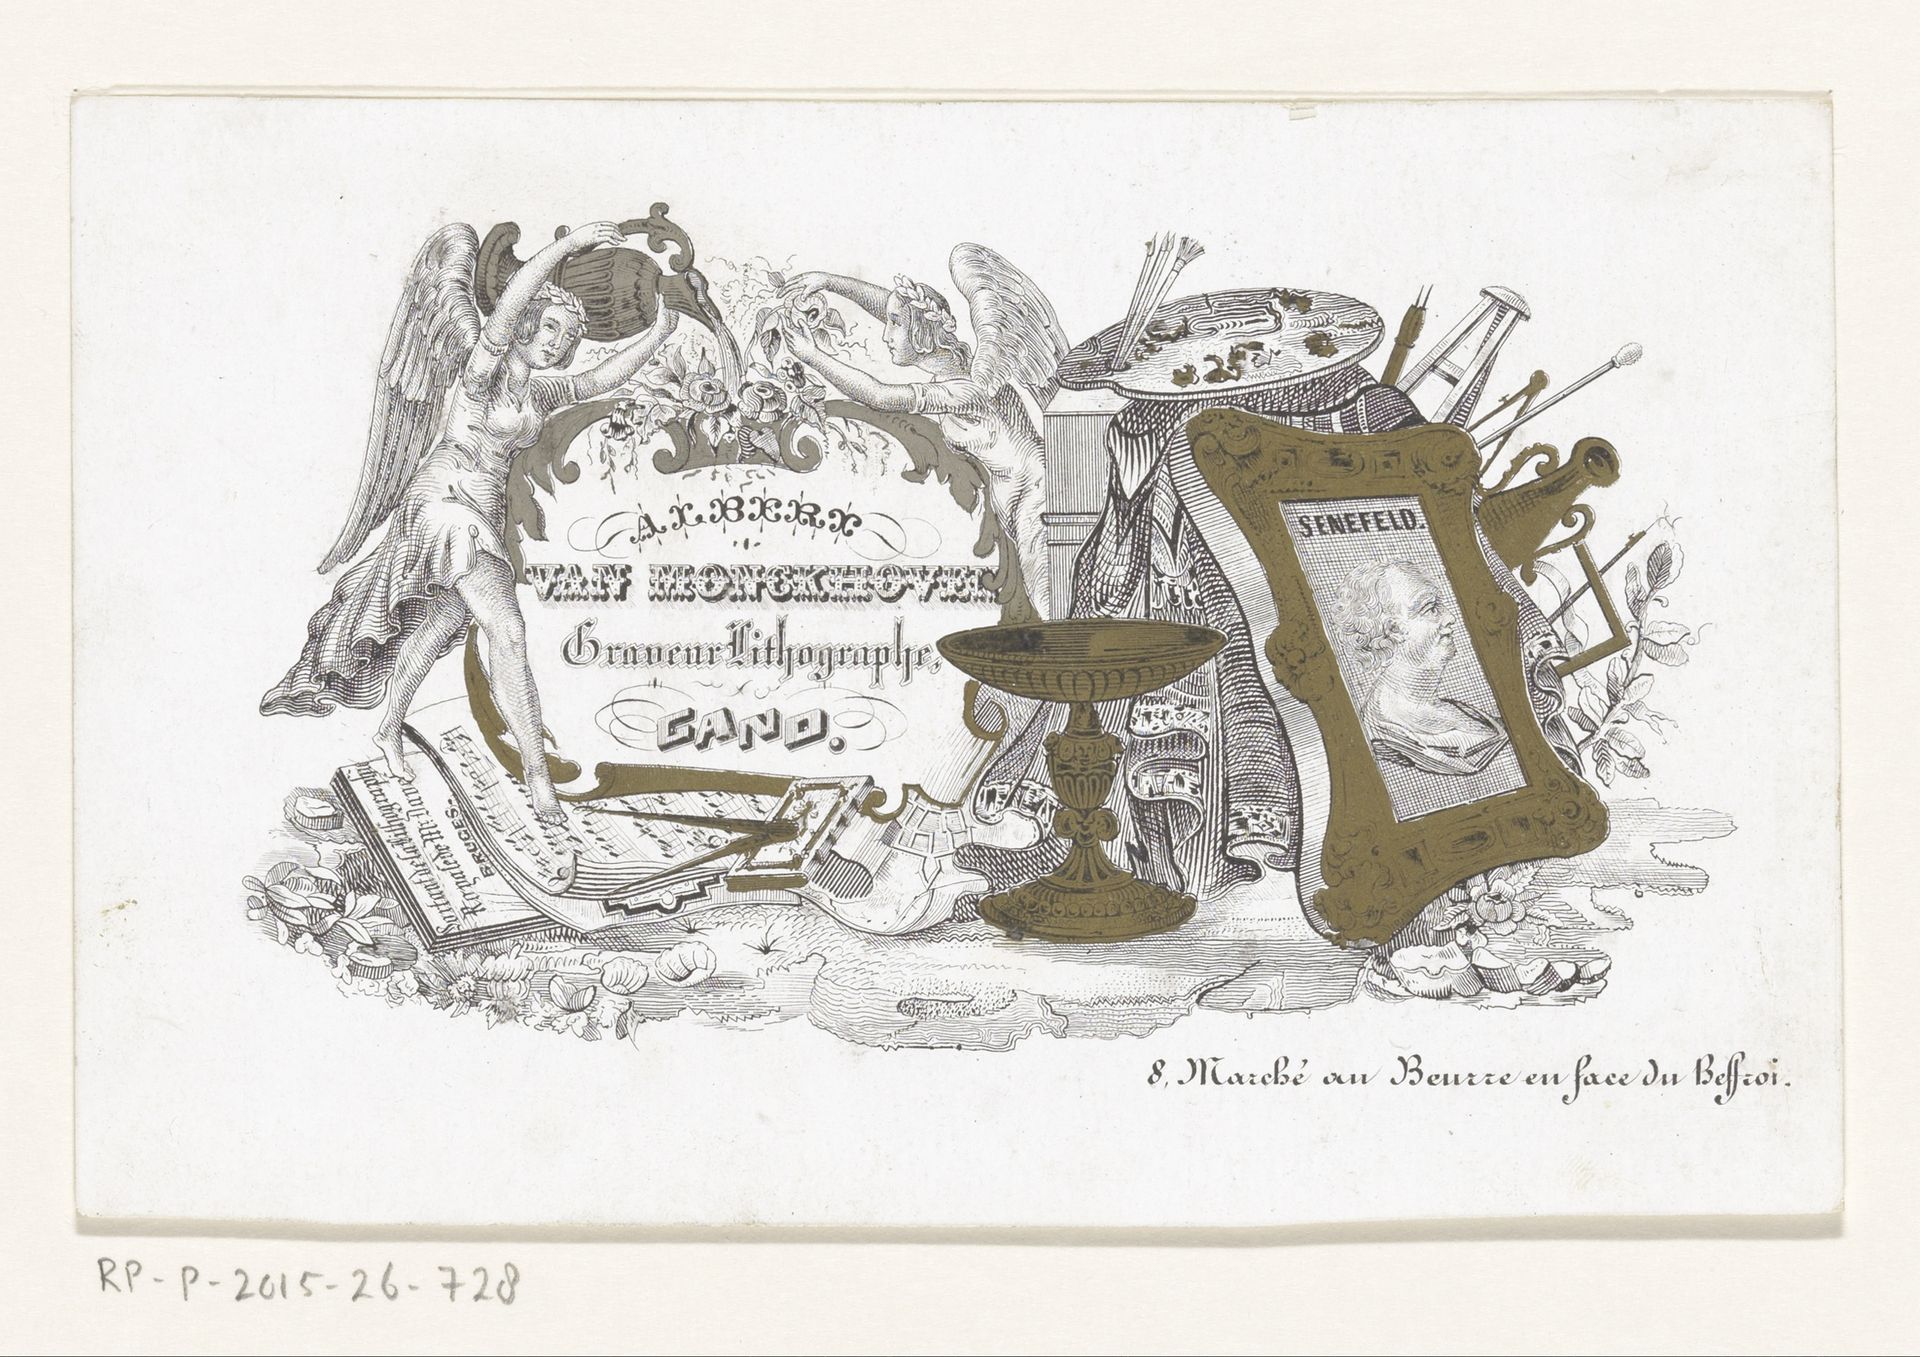 ALBERT
VAN MONCKHOVEN
Graveur Lithographe,
GAND.
SENEFELD.
BRUGES.
8, Marché au Beurre en face du Beffroi.
RP-P-2015-26-728